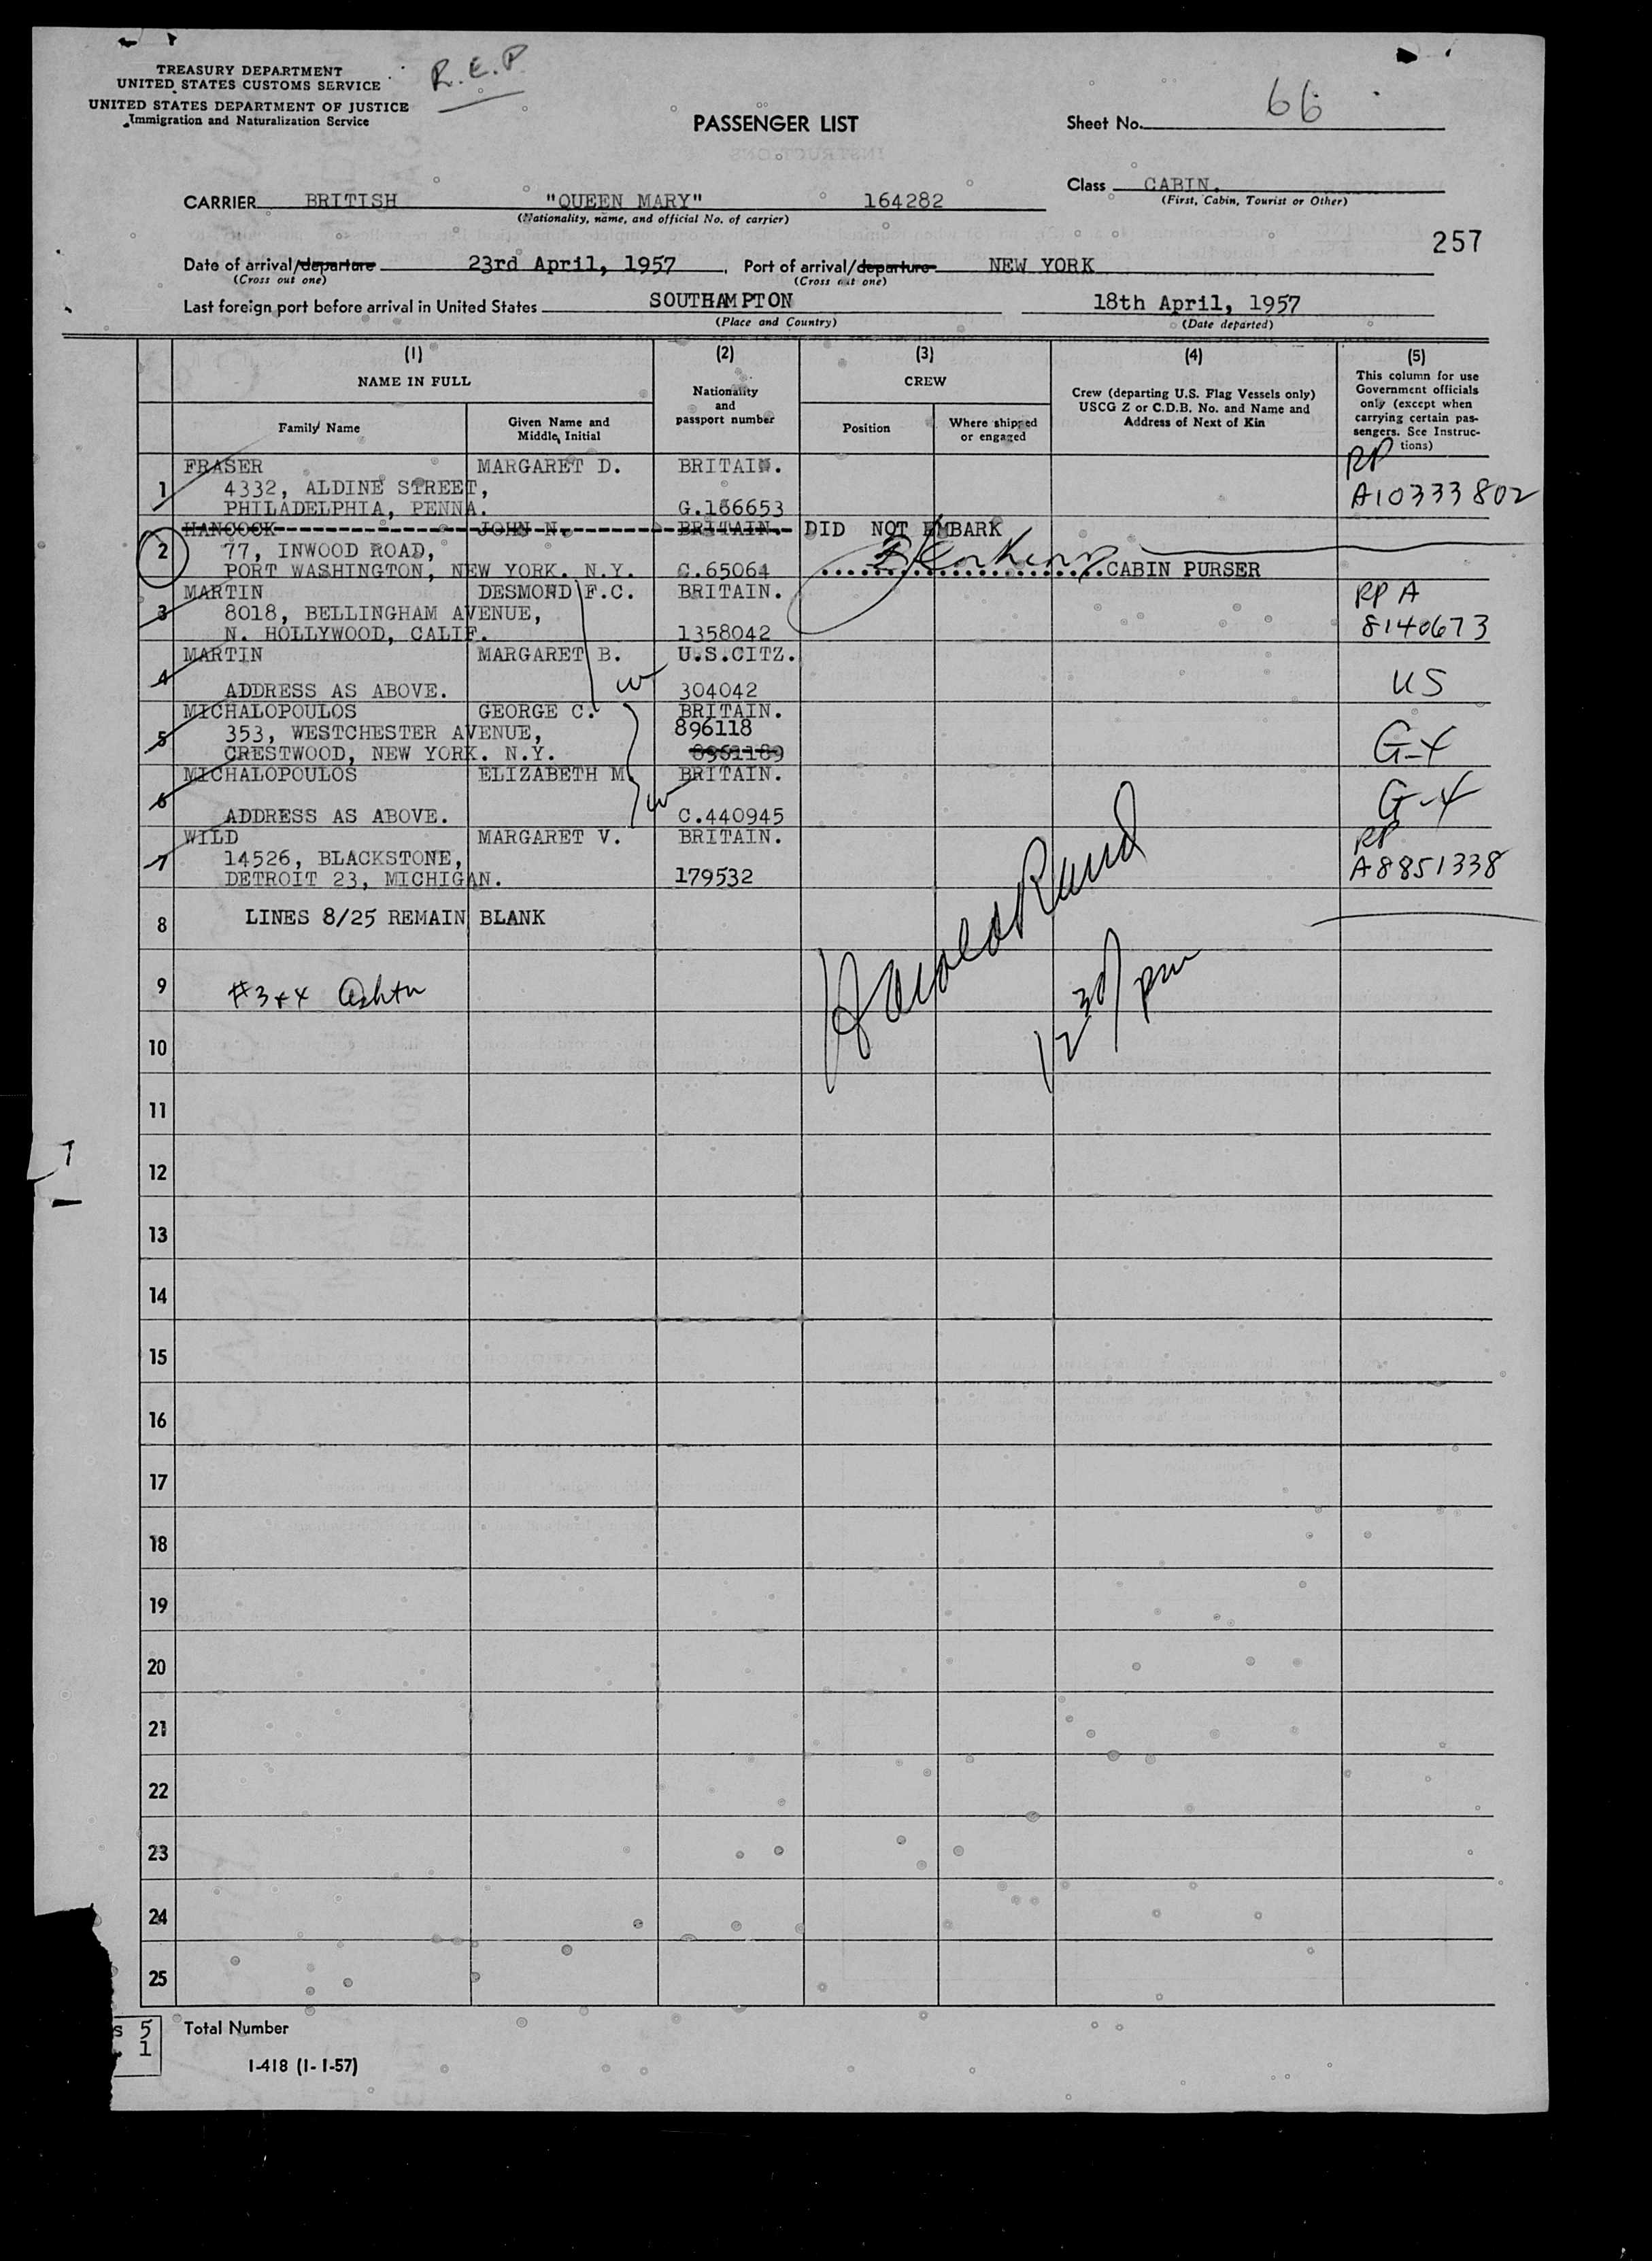 TREASURY DEPARTMENT
UNITED STATES CUSTOMS SERVICE
UNITED STATES DEPARTMENT OF JUSTICE
Immigration and Naturalization Service
R.E.P
PASSENGER LIST
Sheet No. 66
Class CABIN.
(First, Cabin, Tourist or Other)
CARRIER BRITISH "QUEEN MARY" 164282
(Nationality, name, and official No. of carrier)
257
Date of arrival/departure 23rd April, 1957. Port of arrival/departure NEW YORK
(Cross out one) (Cross out one)
Last foreign port before arrival in United States SOUTHAMPTON 18th April, 1957
(Place and Country) (Date departed)
(1) (2) (3) (4) (5)
NAME IN FULL
Family Name
Given Name and Middle Initial
Nationality and passport number
CREW
Position
Where shipped or engaged
Crew (departing U.S. Flag Vessels only) USCG Z or C.D.B. No. and Name and Address of Next of Kin
This column for use Government officials only (except when carrying certain passengers. See Instructions)
1 FRASER MARGARET D. BRITAIN. RP
4332, ALDINE STREET, A10333802
PHILADELPHIA, PENNA. G.166653
2 HANCOCK JOHN N. BRITAIN. DID NOT EMBARK
77, INWOOD ROAD,
PORT WASHINGTON, NEW YORK. N.Y. C.65064 CABIN PURSER
3 MARTIN DESMOND F.C. BRITAIN. RP A
8018, BELLINGHAM AVENUE,
N. HOLLYWOOD, CALIF. 1358042 8140673
4 MARTIN MARGARET B. U.S.CITZ.
ADDRESS AS ABOVE. W 304042 US
5 MICHALOPOULOS GEORGE C. BRITAIN.
353, WESTCHESTER AVENUE, 896118
CRESTWOOD, NEW YORK. N.Y. 8961189 G-4
6 MICHALOPOULOS ELIZABETH M. BRITAIN.
ADDRESS AS ABOVE. W C.440945 G-4
7 WILD MARGARET V. BRITAIN. RP
14526, BLACKSTONE, A8851338
DETROIT 23, MICHIGAN. 179532
8 LINES 8/25 REMAIN BLANK
9 #3+4
Harold Rand
12 30/pm
10
11
12
13
14
15
16
17
18
19
20
21
22
23
24
25
s 5
1
Total Number
I-418 (1-1-57)